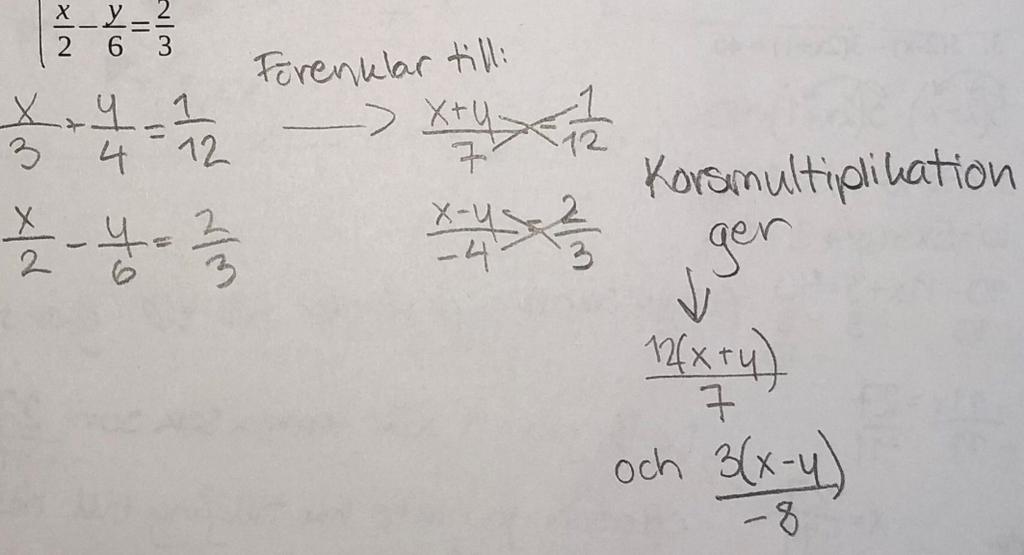 x/2 - y/6 = 2/3
Förenklar till:
x/3 + y/4 = 1/12 → (x+y)/7 = 1/12
x/2 - y/6 = 2/3 (x-y)/-4 = 2/3
Korsmultiplikation
ger
↓
12(x+y)/7
och 3(x-y)/-8